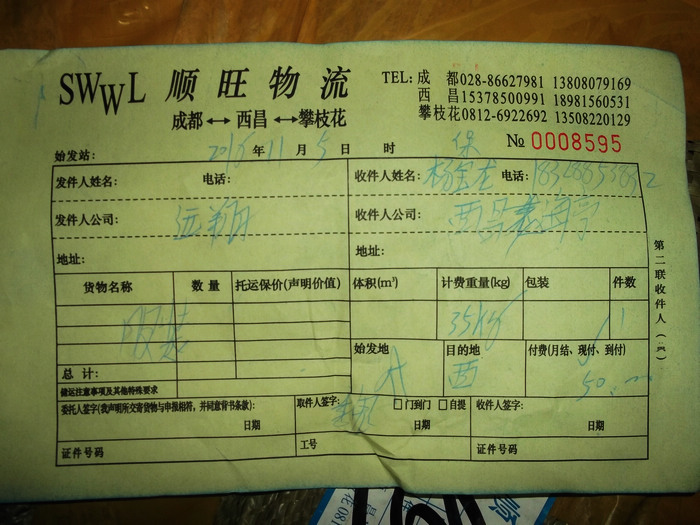 SWWL 顺旺物流
成都↔西昌↔攀枝花
TEL: 成 都028-86627981 13808079169
西 昌15378500991 18981560531
攀枝花0812-6922692 13508220129
№ 0008595
始发站: 年 11 月 5 日 时
发件人姓名: 电话: 收件人姓名: 电话:
发件人公司: 远翔 收件人公司:
地址: 地址:
货物名称 数量 托运保价(声明价值) 体积(m³) 计费重量(kg) 包装 件数
服装 35kg 1
始发地 目的地 付费(月结、现付、到付)
总计: 西 50
储运注意事项及其他特殊要求
委托人签字(我声明所交寄货物与申报相符,并同意背书条款): 取件人签字: □门到门 □自提 收件人签字:
日期 日期 日期
证件号码 工号 证件号码
第二联收件人(页)